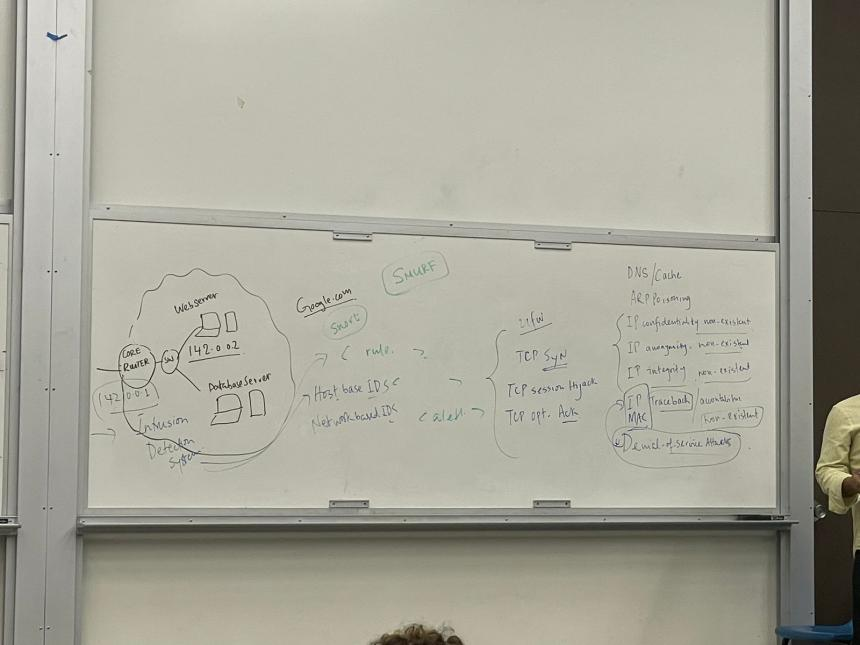 Webserver
142.0.0.2
CORE
ROUTER
SW
142.0.0.1
Database Server
Intrusion
Detection
System
SMURF
Google.com
Snort
< rule. >
Host base IDS < >
Network based IDS < alert. >
TCP SYN
TCP session Hijack
TCP opt. Ack
DNS/Cache
ARP Poisoning
IP confidentiality non-existent
IP anonymity. non-existent
IP integrity non-existent
IP Traceback/
MAC non-existent
Denial-of-service Attacks